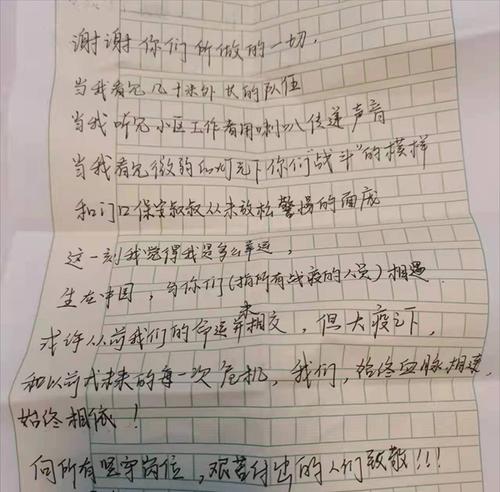 谢谢你们所做的一切，
当我看见几十米外长的队伍
当我听见小区工作者用喇叭传递声音
当我看见微弱的灯光下你们"战斗"的模样
和门口保安叔叔从未放松警惕的面庞
这一刻我觉得我是多么幸运，
生在中国，与你们(指所有战疫的人员)相遇.
或许从前我们的命运并未相交，但大疫之下，
和以前或未来的每一次危机，我们，始终血脉相连，
始终相依！
向所有坚守岗位，艰苦付出的人们致敬!!!